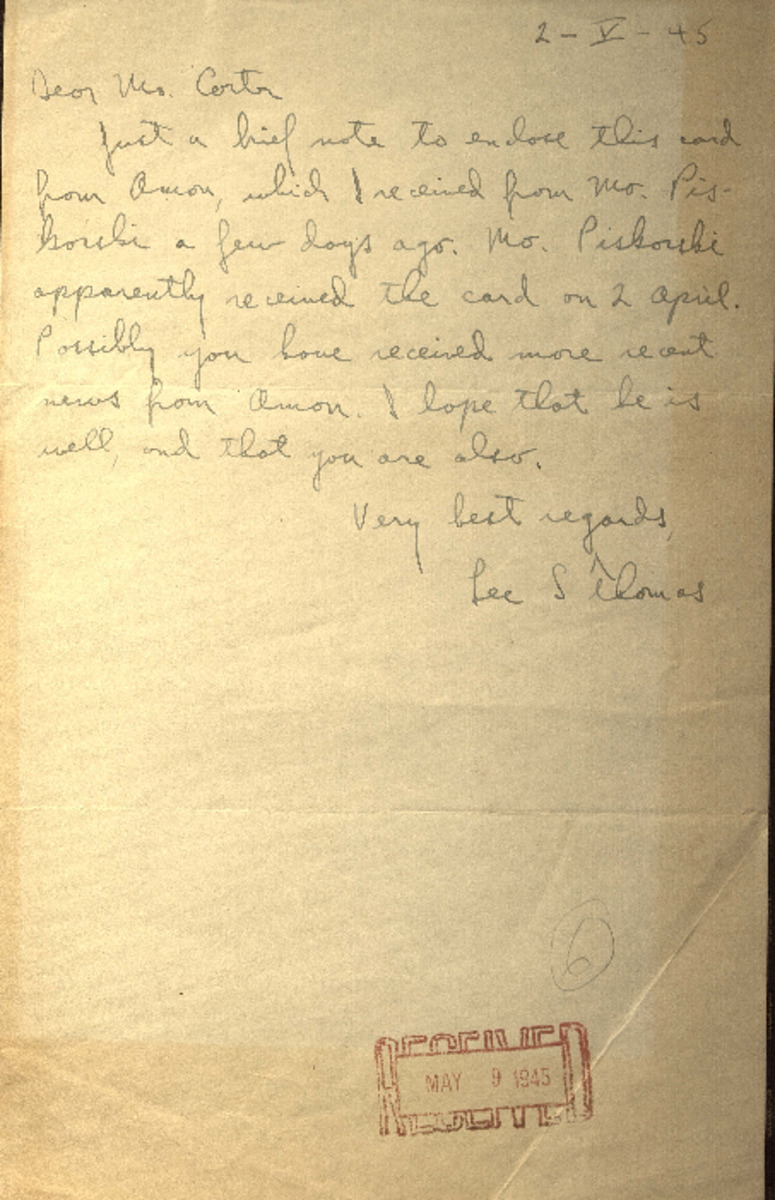 2 - V - 45
Dear Mr. Carter
Just a brief note to enclose this card
from Amon, which I received from Mr. Pis-
korski a few days ago. Mr. Piskorski
apparently received the card on 2 April.
Possibly you have received more recent
news from Amon. I hope that he is
well, and that you are also.
Very best regards,
Lee S Thomas
6
RECEIVED
MAY 9 1945
RECEIVED